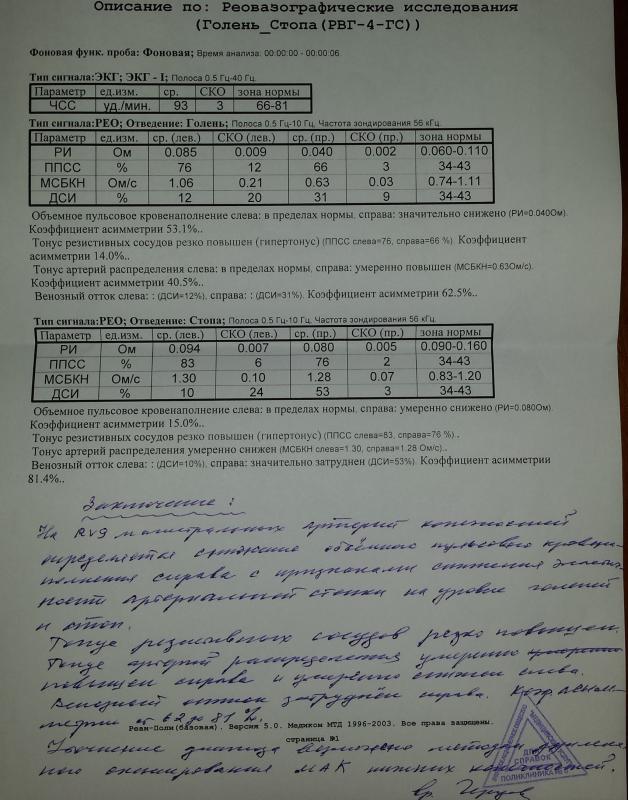 Описание по: Реовазографические исследования
(Голень_Стопа(РВГ-4-ГС))
Фоновая функ. проба: Фоновая; Время анализа: 00:00:00 - 00:00:06
Тип сигнала:ЭКГ; ЭКГ - I; Полоса 0.5 Гц-40 Гц.
Параметр ед.изм. ср. СКО зона нормы
ЧСС уд./мин. 93 3 66-81
Тип сигнала:РЕО; Отведение: Голень; Полоса 0.5 Гц-10 Гц, Частота зондирования 56 кГц.
Параметр ед.изм. ср. (лев.) СКО (лев.) ср. (пр.) СКО (пр.) зона нормы
РИ Ом 0.085 0.009 0.040 0.002 0.060-0.110
ППСС % 76 12 66 3 34-43
МСБКН Ом/с 1.06 0.21 0.63 0.03 0.74-1.11
ДСИ % 12 20 31 9 34-43
Объемное пульсовое кровенаполнение слева: в пределах нормы, справа: значительно снижено (РИ=0.040Ом).
Коэффициент асимметрии 53.1%..
Тонус резистивных сосудов резко повышен (гипертонус) (ППСС слева=76, справа=66 %). Коэффициент
асимметрии 14.0%..
Тонус артерий распределения слева: в пределах нормы, справа: умеренно повышен (МСБКН=0.63Ом/с).
Коэффициент асимметрии 40.5%..
Венозный отток слева: : (ДСИ=12%), справа: : (ДСИ=31%). Коэффициент асимметрии 62.5%..
Тип сигнала:РЕО; Отведение: Стопа; Полоса 0.5 Гц-10 Гц, Частота зондирования 56 кГц.
Параметр ед.изм. ср. (лев.) СКО (лев.) ср. (пр.) СКО (пр.) зона нормы
РИ Ом 0.094 0.007 0.080 0.005 0.090-0.160
ППСС % 83 6 76 2 34-43
МСБКН Ом/с 1.30 0.10 1.28 0.07 0.83-1.20
ДСИ % 10 24 53 3 34-43
Объемное пульсовое кровенаполнение слева: в пределах нормы, справа: умеренно снижено (РИ=0.080Ом).
Коэффициент асимметрии 15.0%..
Тонус резистивных сосудов резко повышен (гипертонус) (ППСС слева=83, справа=76 %)..
Тонус артерий распределения умеренно снижен (МСБКН слева=1.30, справа=1.28 Ом/с)..
Венозный отток слева: : (ДСИ=10%), справа: значительно затруднен (ДСИ=53%). Коэффициент асимметрии
81.4%..
Заключение:
На RVg магистральных артерий конечностей
определяется снижение объёмного пульсового кровена-
полнения справа с признаками снижения эластич-
ности артериальной стенки на уровне голеней
и стоп.
Тонус резистивных сосудов резко повышен.
Тонус артерий распределения умеренно
повышен справа и умеренно снижен слева.
Венозный отток затруднён справа. Коэф. асим-
метрии от 62 до 81 %.
Реан-Поли(базовая). Версия 5.0. Медиком МТД 1996-2003. Все права защищены.
страница №1
Уточнение диагноза возможно методом дуплекс-
ного сканирования МАК нижних конечностей.
Вр.
ДЛЯ
СПРАВОК
ПОЛИКЛИНИКА